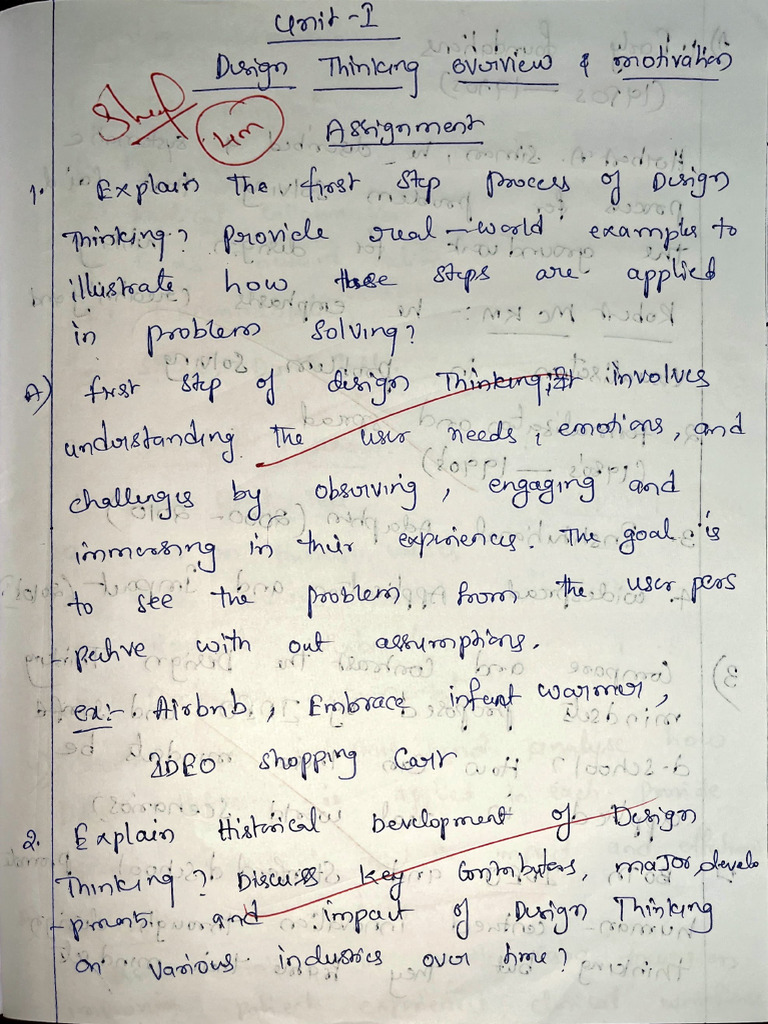 Unit - I
Design Thinking overview & motivation
4m
Assignment
1. Explain the first step process of Design
Thinking? Provide real-world examples to
illustrate how these steps are applied
in problem solving?
A) first step of design Thinking, it involves
understanding the user needs, emotions, and
challenges by observing, engaging and
immersing in their experiences. The goal is
to see the problem from the user pers
pective with out assumptions.
ex:- Airbnb, Embrace infant warmer,
IDEO shopping Cart
2. Explain Historical Development of Design
Thinking? Discuss key Contributers, major develo
pment. and impact of Design Thinking
on various industries over time?